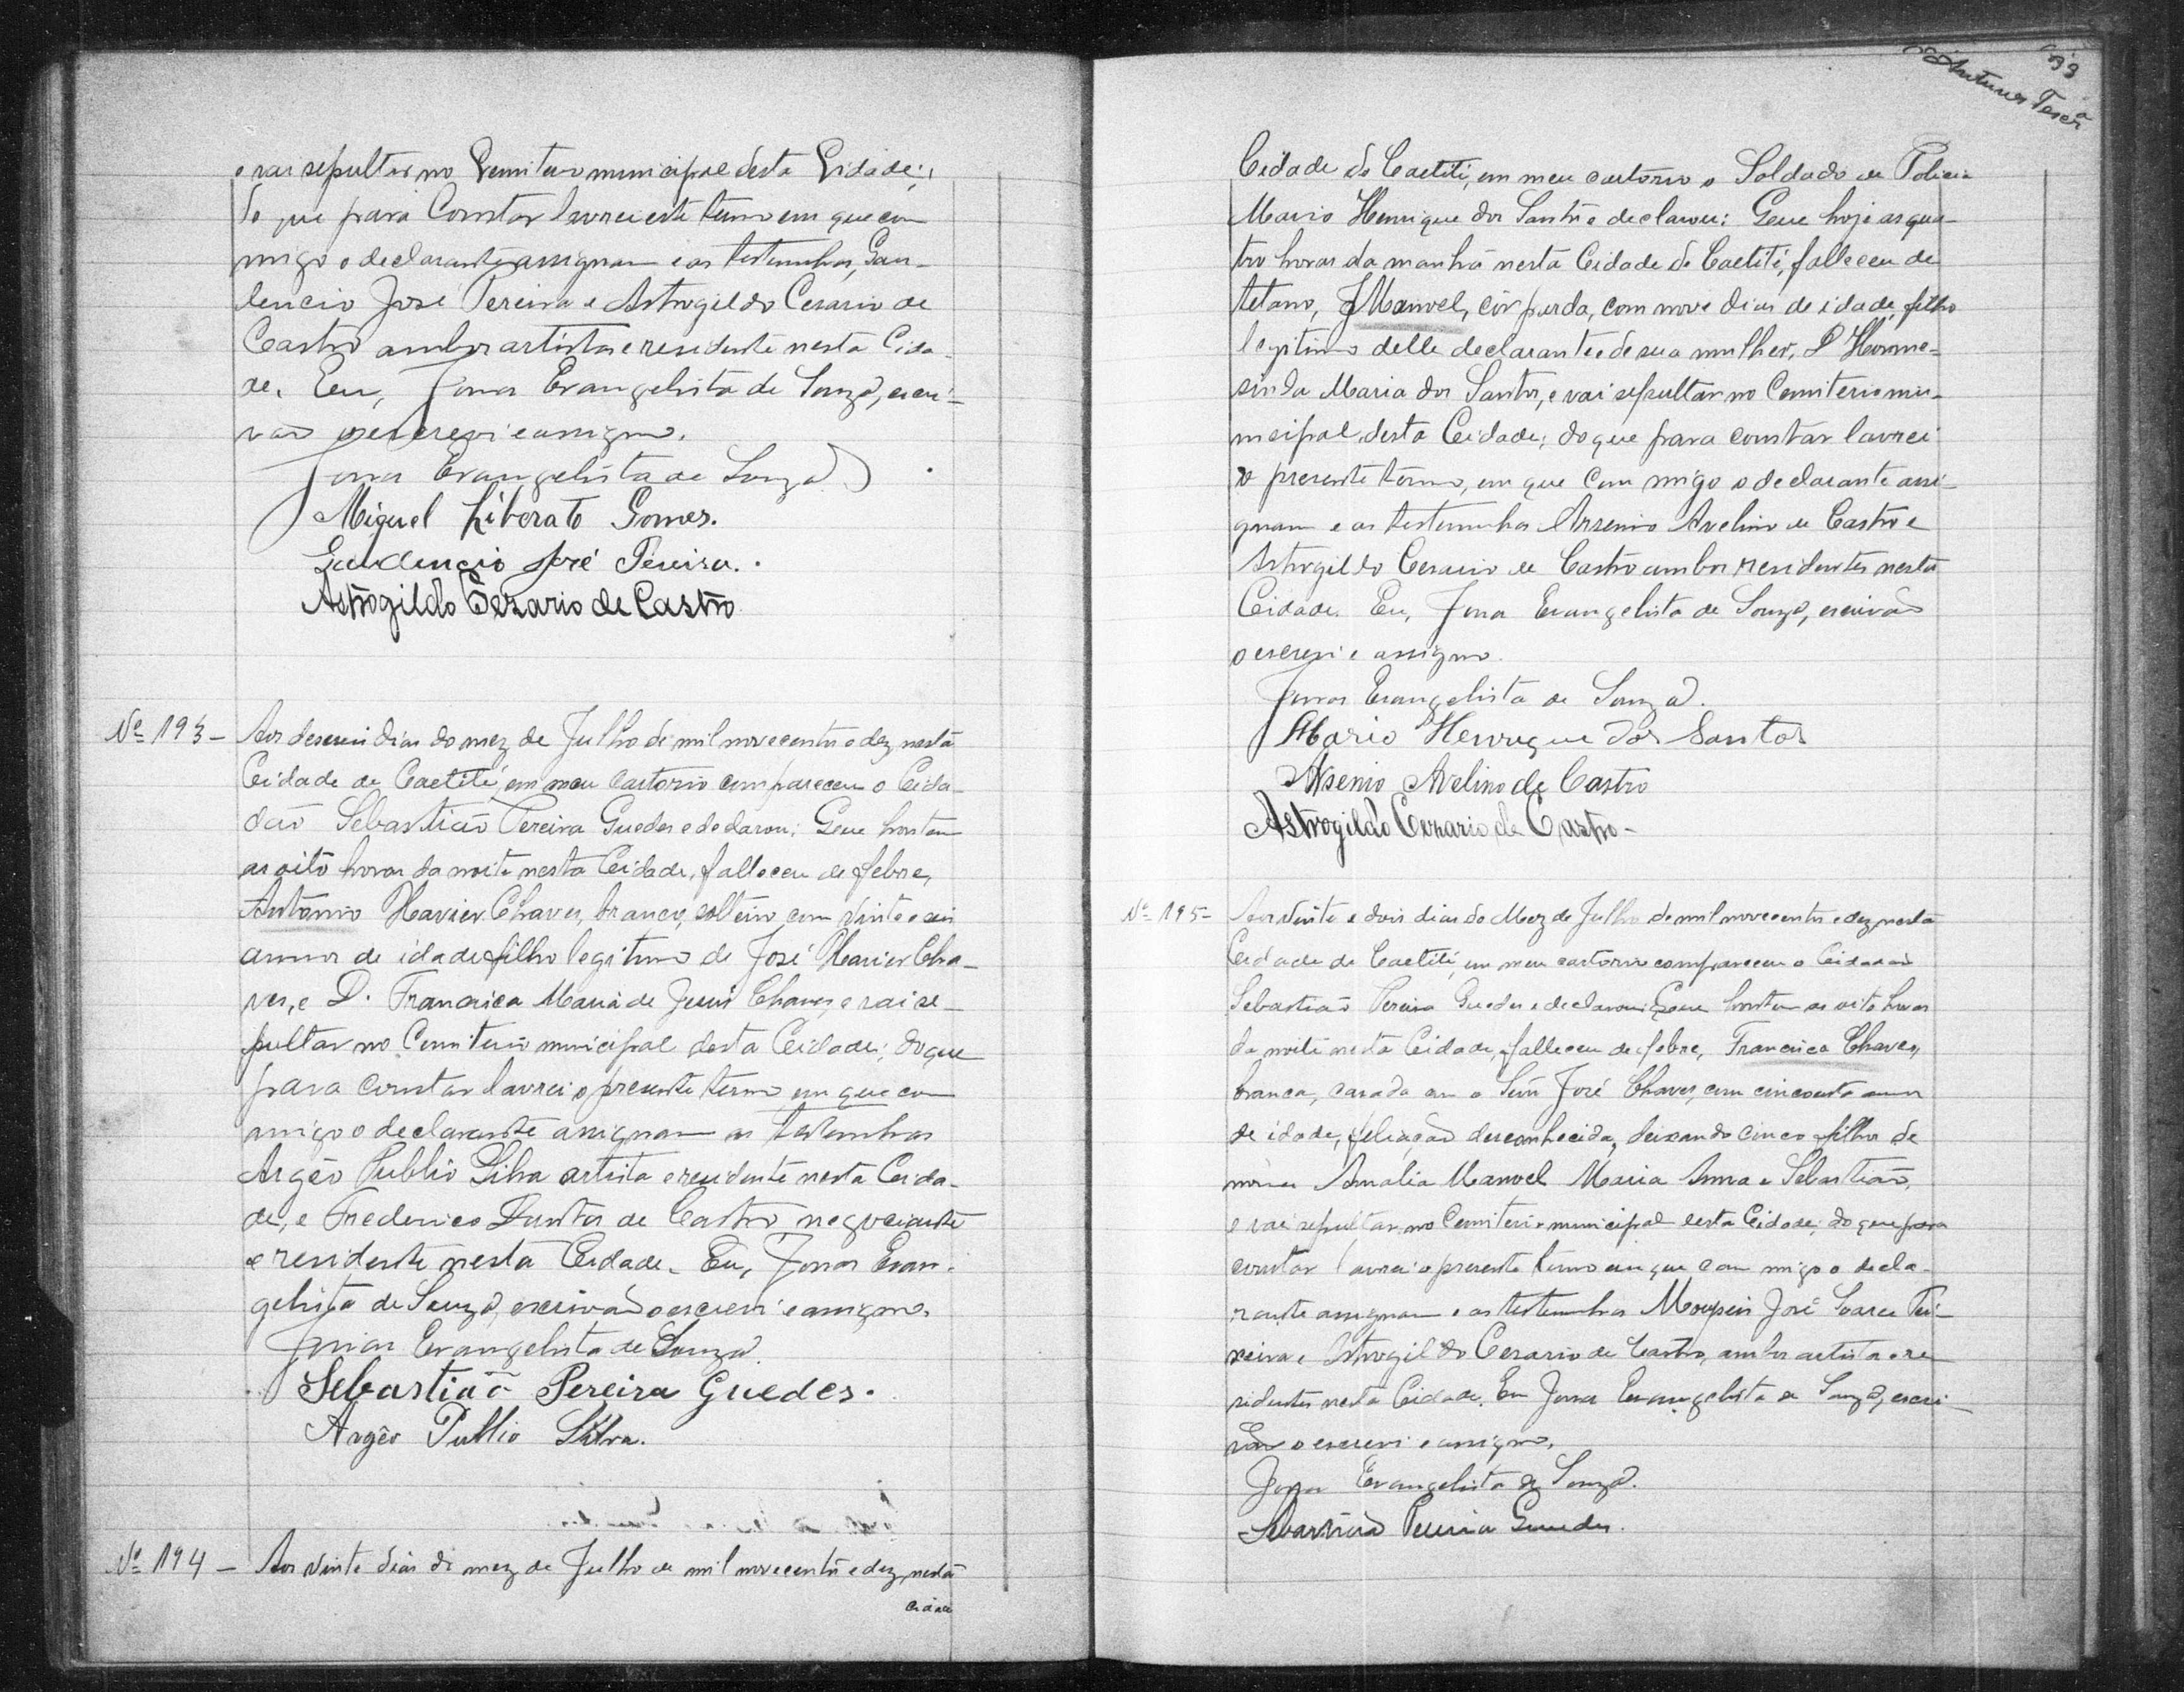 e vai sepultar no Cemiterio municipal desta Cidade;
do que para Constar lavrei este termo em que com
migo o declarante assignam e as testemunhas, Gau-
dencio José Pereira e Astrogildo Cesario de
Castro ambos artistas e residente nesta Cida-
de. Eu, Jonas Evangelista de Souza, escri-
vão o escrevi e assigno.
Jonas Evangelista de Souza
Miguel Liberato Gomes.
Gaudencio José Pereira.
Astrogildo Cezario de Castro
Nº 193 - Aos deseseis dias do mez de Julho de mil novecentos e dez nesta
Cidade de Caetité, em meu Cartorio compareceu o Cida-
dão Sebastião Pereira Guedes e declarou; Que hontem
as oito horas da noite nesta Cidade, falleceu de febre,
Antonio Xavier Chaves, branco, solteiro com vinte e seis
annos de idade filho legitimo de José Xavier Cha-
ves, e D. Francisca Maria de Jesus Chaves, e vai se-
pultar no Cemiterio municipal desta Cidade; do que
para constar lavrei o presente termo em que com
migo o declarante assignam as testemunhas
Argêo Publio Silva artista e residente nesta Cida-
de, e Frederico Dantas de Castro negociante
e residente nesta Cidade. Eu, Jonas Evan-
gelista de Souza, escrivão o escrevi e assigno.
Jonas Evangelista de Souza
Sebastião Pereira Guedes.
Argêo Publio Silva.
Nº 194 - Aos vinte dias do mez de Julho de mil novecentos e dez, nesta
Cidade
Antunes
Cidade de Caetité, em meu cartorio o Soldado de Policia
Mario Henrique dos Santos e declarou: Que hoje as qua-
tro horas da manhã nesta Cidade de Caetité, falleceu de
tetano, Manoel, côr parda, com nove dias de idade, filho
legitimo delle declarante e de sua mulher, D Herme-
sinda Maria dos Santos, e vai sepultar no Cemiterio mu-
nicipal desta Cidade; do que para constar lavrei
o presente termo, em que com migo o declarante assi-
gnam e as testemunhas Arsenio Avelino de Castro e
Astrogildo Cesario de Castro ambos residentes nesta
Cidade. Eu, Jonas Evangelista de Souza, escrivão
o escrevi e assigno.
Jonas Evangelista de Souza.
Mario Henrique dos Santos
Arsenio Avelino de Castro
Astrogildo Cezario de Castro-
Nº 195- Aos vinte e dois dias do Mez de Julho de mil novecentos e dez, nesta
Cidade de Caetité, em meu cartorio compareceu o Cidadão
Sebastião Pereira Guedes e declarou: Que hontem as oito horas
da noite nesta Cidade, falleceu de febre, Francisca Chaves,
branca, casada com o José Chaves, com cincoenta annos
de idade, filiação desconhecida, deixando cinco filhos de
nomes Amalia Manoel Maria Anna e Sebastião,
e vai sepultar no Cemiterio municipal desta Cidade; do que para
constar lavrei o presente termo em que com migo o decla-
rante assignam e as testemunhas José Soares Tei-
xeira e Astrogildo Cesario de Castro, ambos artista e re-
sidentes nesta Cidade. Eu Jonas Evangelista de Souza, escri-
vão o escrevi e assigno.
Jonas Evangelista de Souza.
Sebastião Pereira Guedes.